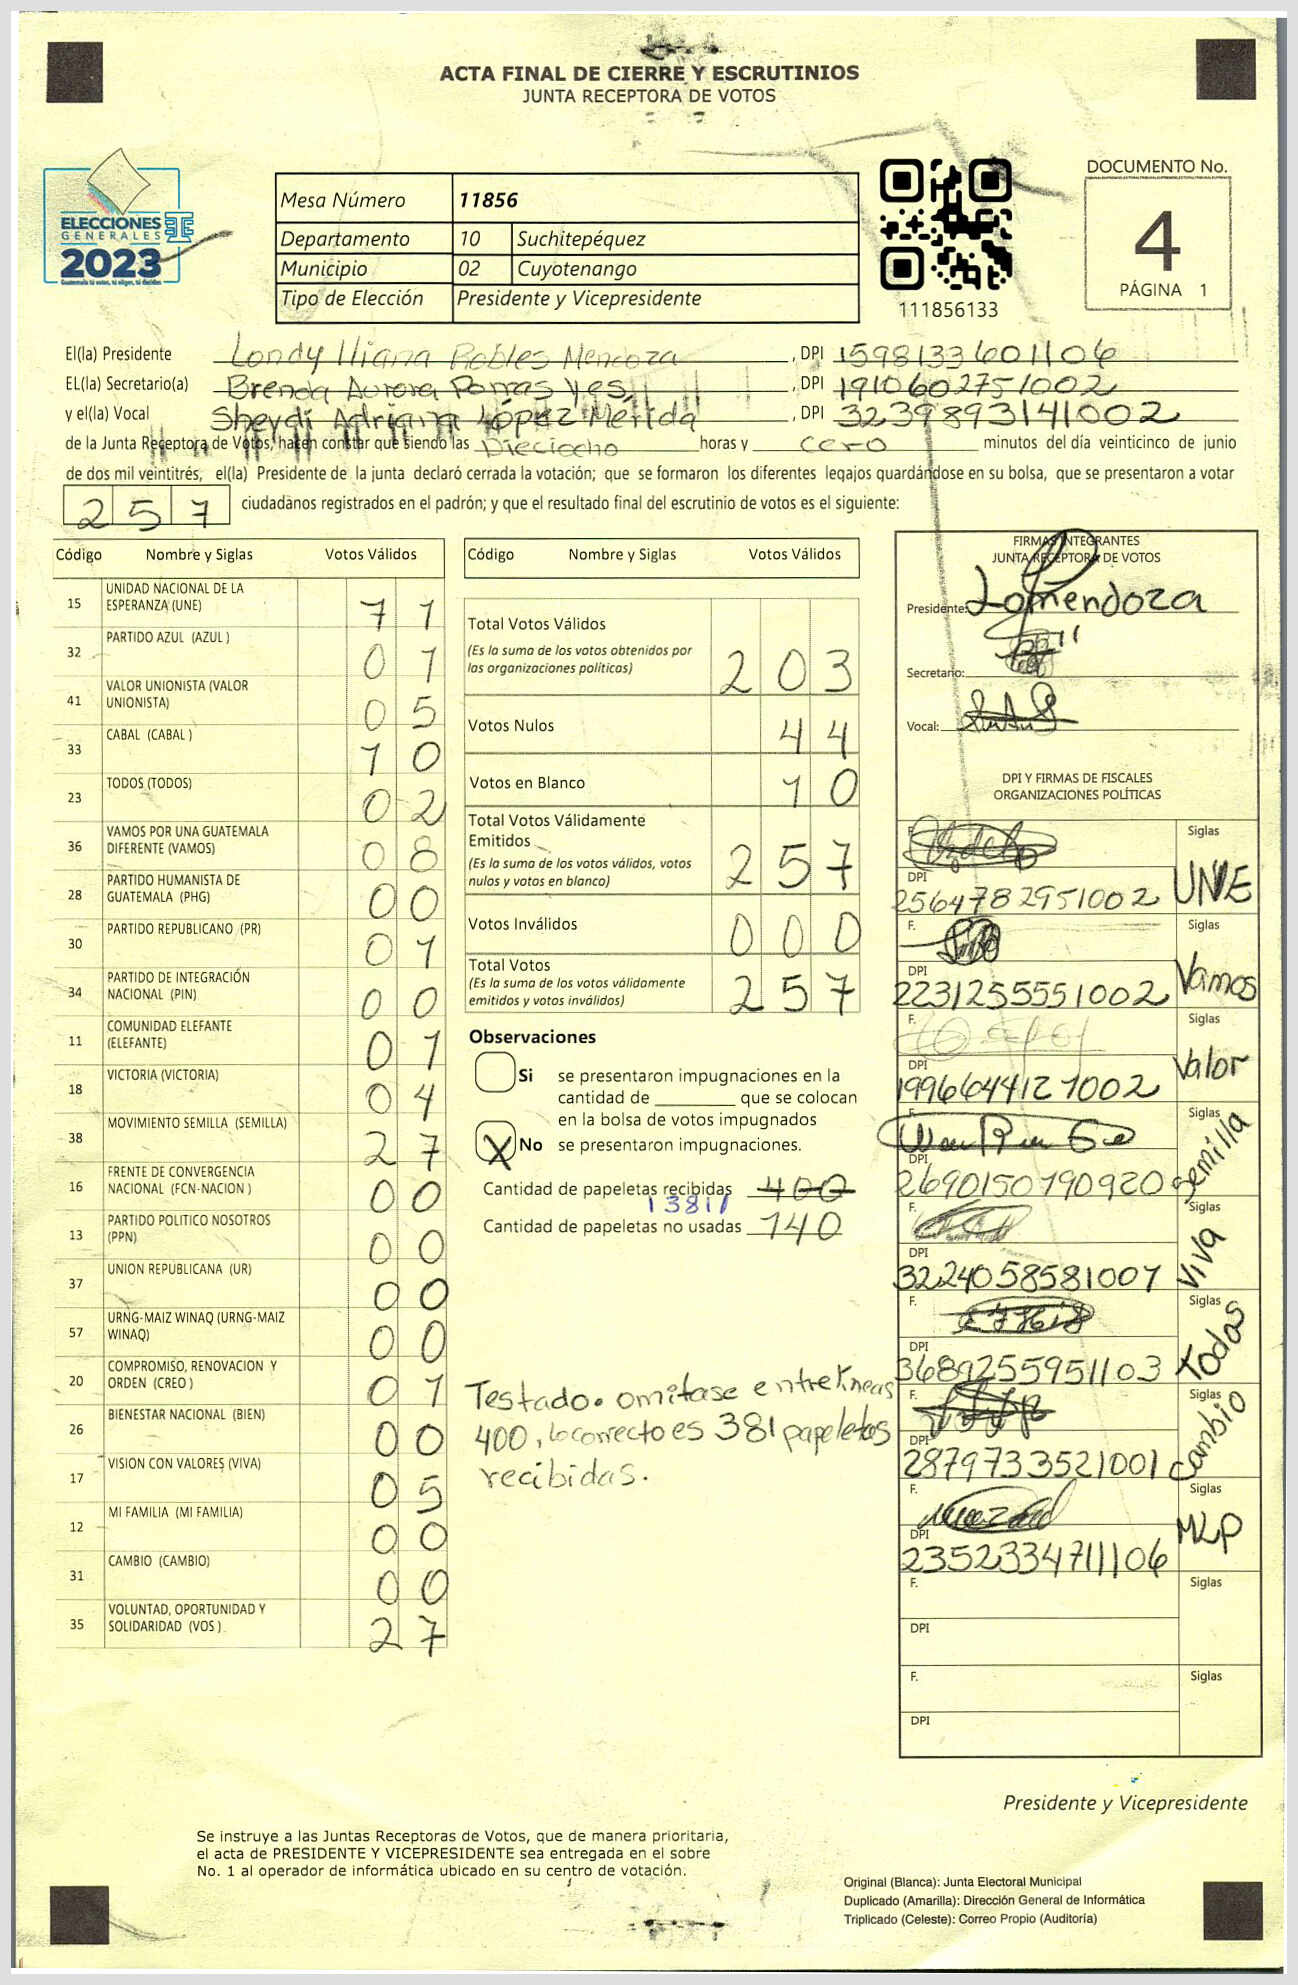 ACTA FINAL DE CIERRE Y ESCRUTINIOS
JUNTA RECEPTORA DE VOTOS
ELECCIONES
GENERALES
2023
Mesa Número 11856
Departamento 10 Suchitepéquez
Municipio 02 Cuyotenango
Tipo de Elección Presidente y Vicepresidente
111856133
DOCUMENTO No.
4
PÁGINA 1
El(la) Presidente Londy Iliana Robles Mendoza, DPI 1598133601106
EL(la) Secretario(a) Brenda Aurora Porras Yes, DPI 1910602751002
y el(la) Vocal Sheydi Adriana López Mérida, DPI 3239893141002
de la Junta Receptora de Votos, hacen constar que siendo las Dieciocho horas y cero minutos del día veinticinco de junio
de dos mil veintitrés, el(la) Presidente de la junta declaró cerrada la votación; que se formaron los diferentes legajos guardándose en su bolsa, que se presentaron a votar
257 ciudadanos registrados en el padrón; y que el resultado final del escrutinio de votos es el siguiente:
Código Nombre y Siglas Votos Válidos
15 UNIDAD NACIONAL DE LA ESPERANZA (UNE) 71
32 PARTIDO AZUL (AZUL ) 01
41 VALOR UNIONISTA (VALOR UNIONISTA) 05
33 CABAL (CABAL ) 10
23 TODOS (TODOS) 02
36 VAMOS POR UNA GUATEMALA DIFERENTE (VAMOS) 08
28 PARTIDO HUMANISTA DE GUATEMALA (PHG) 00
30 PARTIDO REPUBLICANO (PR) 01
34 PARTIDO DE INTEGRACIÓN NACIONAL (PIN) 00
11 COMUNIDAD ELEFANTE (ELEFANTE) 01
18 VICTORIA (VICTORIA) 04
38 MOVIMIENTO SEMILLA (SEMILLA) 27
16 FRENTE DE CONVERGENCIA NACIONAL (FCN-NACION ) 00
13 PARTIDO POLITICO NOSOTROS (PPN) 00
37 UNION REPUBLICANA (UR) 00
57 URNG-MAIZ WINAQ (URNG-MAIZ WINAQ) 00
20 COMPROMISO, RENOVACION Y ORDEN (CREO ) 01
26 BIENESTAR NACIONAL (BIEN) 00
17 VISION CON VALORES (VIVA) 05
12 MI FAMILIA (MI FAMILIA) 00
31 CAMBIO (CAMBIO) 00
35 VOLUNTAD, OPORTUNIDAD Y SOLIDARIDAD (VOS ) 27
Código Nombre y Siglas Votos Válidos
Total Votos Válidos 203
(Es la suma de los votos obtenidos por
las organizaciones políticas)
Votos Nulos 44
Votos en Blanco 10
Total Votos Válidamente
Emitidos 257
(Es la suma de los votos válidos, votos
nulos y votos en blanco)
Votos Inválidos 000
Total Votos 257
(Es la suma de los votos válidamente
emitidos y votos inválidos)
Observaciones
Si se presentaron impugnaciones en la
cantidad de ________ que se colocan
en la bolsa de votos impugnados
X No se presentaron impugnaciones.
Cantidad de papeletas recibidas 400
1381/
Cantidad de papeletas no usadas 140
Testado. omitase entrelineas
400, lo correcto es 381 papeletas
recibidas.
FIRMAS INTEGRANTES
JUNTA RECEPTORA DE VOTOS
Presidente: Lomendoza
Secretario:
Vocal:
DPI Y FIRMAS DE FISCALES
ORGANIZACIONES POLÍTICAS
F. Siglas
DPI 2564782951002 UNE
F. Siglas
DPI 2231255551002 Vamos
F. Siglas
DPI 1996644121002 Valor
F. Siglas
DPI 2690150190920 Semilla
F. Siglas
DPI 3224058581001 Viva
F. Siglas
DPI 3689255951103 Todos
F. Siglas
DPI 2879733521001 Cambio
F. Siglas
DPI 2352334711106 MLP
F. Siglas
DPI
F. Siglas
DPI
Presidente y Vicepresidente
Se instruye a las Juntas Receptoras de Votos, que de manera prioritaria,
el acta de PRESIDENTE Y VICEPRESIDENTE sea entregada en el sobre
No. 1 al operador de informática ubicado en su centro de votación.
Original (Blanca): Junta Electoral Municipal
Duplicado (Amarilla): Dirección General de Informática
Triplicado (Celeste): Correo Propio (Auditoría)